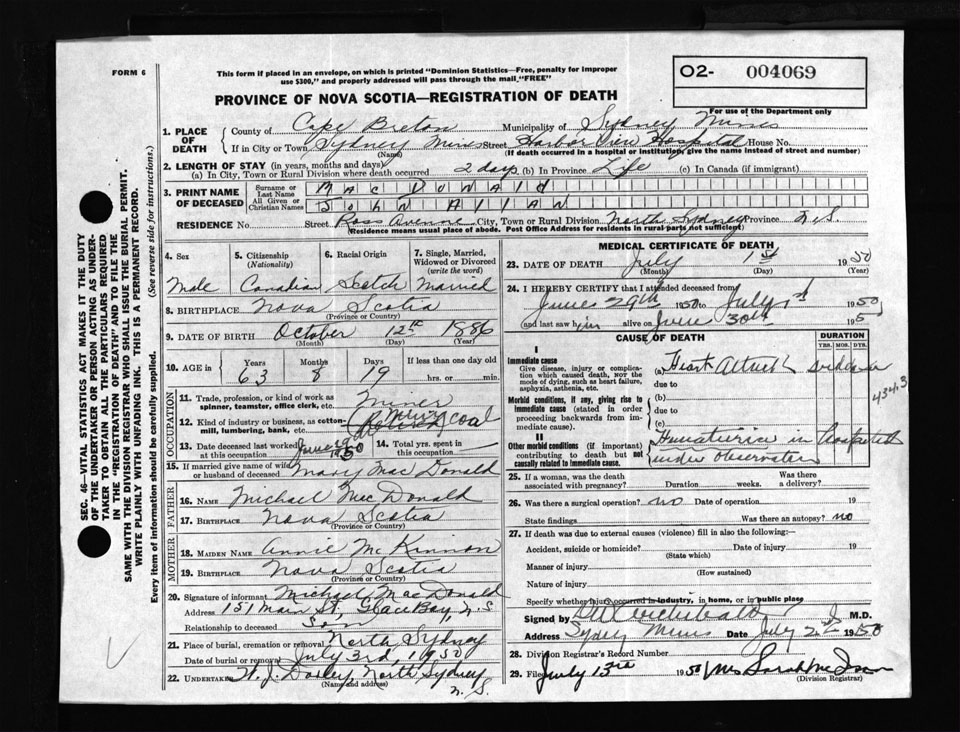 FORM 6
This form if placed in an envelope, on which is printed "Dominion Statistics—Free, penalty for improper
use $300," and properly addressed will pass through the mail, "FREE"
O2- 004069
For use of the Department only
PROVINCE OF NOVA SCOTIA—REGISTRATION OF DEATH
SEC. 46—VITAL STATISTICS ACT MAKES IT THE DUTY
OF THE UNDERTAKER OR PERSON ACTING AS UNDER-
TAKER TO OBTAIN ALL THE PARTICULARS REQUIRED
IN THE "REGISTRATION OF DEATH" AND TO FILE THE
SAME WITH THE DIVISION REGISTRAR WHO SHALL ISSUE THE BURIAL PERMIT.
WRITE PLAINLY WITH UNFADING INK. THIS IS A PERMANENT RECORD.
Every item of information should be carefully supplied. (See reverse side for instructions.)
1. PLACE OF DEATH County of Cape Breton Municipality of Sydney Mines
If in City or Town Sydney Mines Street Harbor View Hospital House No.
(Name) (If death occurred in a hospital or institution, give the name instead of street and number)
2. LENGTH OF STAY (in years, months and days)
(a) In City, Town or Rural Division where death occurred 2 days (b) In Province Life (c) In Canada (if immigrant)
3. PRINT NAME OF DECEASED Surname or Last Name MacDonald
All Given or Christian Names John Allan
RESIDENCE No. Street Ross Avenue City, Town or Rural Division North Sydney Province N.S.
(Residence means usual place of abode. Post Office Address for residents in rural parts not sufficient)
4. Sex 5. Citizenship (Nationality) 6. Racial Origin 7. Single, Married, Widowed or Divorced (write the word)
Male Canadian Scotch Married
8. BIRTHPLACE Nova Scotia
(Province or Country)
9. DATE OF BIRTH October 12th 1886
(Month) (Day) (Year)
10. AGE in Years Months Days If less than one day old
63 8 19 hrs. or min.
OCCUPATION
11. Trade, profession, or kind of work as spinner, teamster, office clerk, etc. Miner
12. Kind of industry or business, as cotton-mill, lumbering, bank, etc. coal
13. Date deceased last worked at this occupation 14. Total yrs. spent in this occupation
15. If married give name of wife or husband of deceased Mary MacDonald
FATHER
16. NAME Michael MacDonald
17. BIRTHPLACE Nova Scotia
(Province or Country)
MOTHER
18. MAIDEN NAME Annie McKinnon
19. BIRTHPLACE Nova Scotia
(Province or Country)
20. Signature of informant Michael MacDonald
Address 151 Main St. Glace Bay, N.S
Relationship to deceased Son
21. Place of burial, cremation or removal North Sydney
Date of burial or removal July 3rd, 1950
22. UNDERTAKER North Sydney N.S.
(Name and address)
MEDICAL CERTIFICATE OF DEATH
23. DATE OF DEATH July 1st 1950
(Month) (Day) (Year)
24. I HEREBY CERTIFY that I attended deceased from
June 29th 1950 to July 1st 1950
and last saw him alive on June 30th 195
CAUSE OF DEATH DURATION
YRS. MOS. DYS.
I
Immediate cause
Give disease, injury or complication which caused death, not the mode of dying, such as heart failure, asphyxia, asthenia, etc.
(a) Heart Attack
due to
Morbid conditions, if any, giving rise to immediate cause (stated in order proceeding backwards from immediate cause).
(b)
due to
(c)
II
Other morbid conditions (if important) contributing to death but not causally related to immediate cause.
in
under observation
25. If a woman, was the death associated with pregnancy? Duration weeks. Was there a delivery?
26. Was there a surgical operation? no Date of operation 19
State findings Was there an autopsy? no
27. If death was due to external causes (violence) fill in also the following:—
Accident, suicide or homicide? Date of injury 19
(State which)
Manner of injury
(How sustained)
Nature of injury
Specify whether injury occurred in industry, in home, or in public place
Signed by M.D.
Address Sydney Mines Date July 2nd 1950
28. Division Registrar's Record Number
29. Filed July 1950 Mrs Sarah
(Division Registrar)